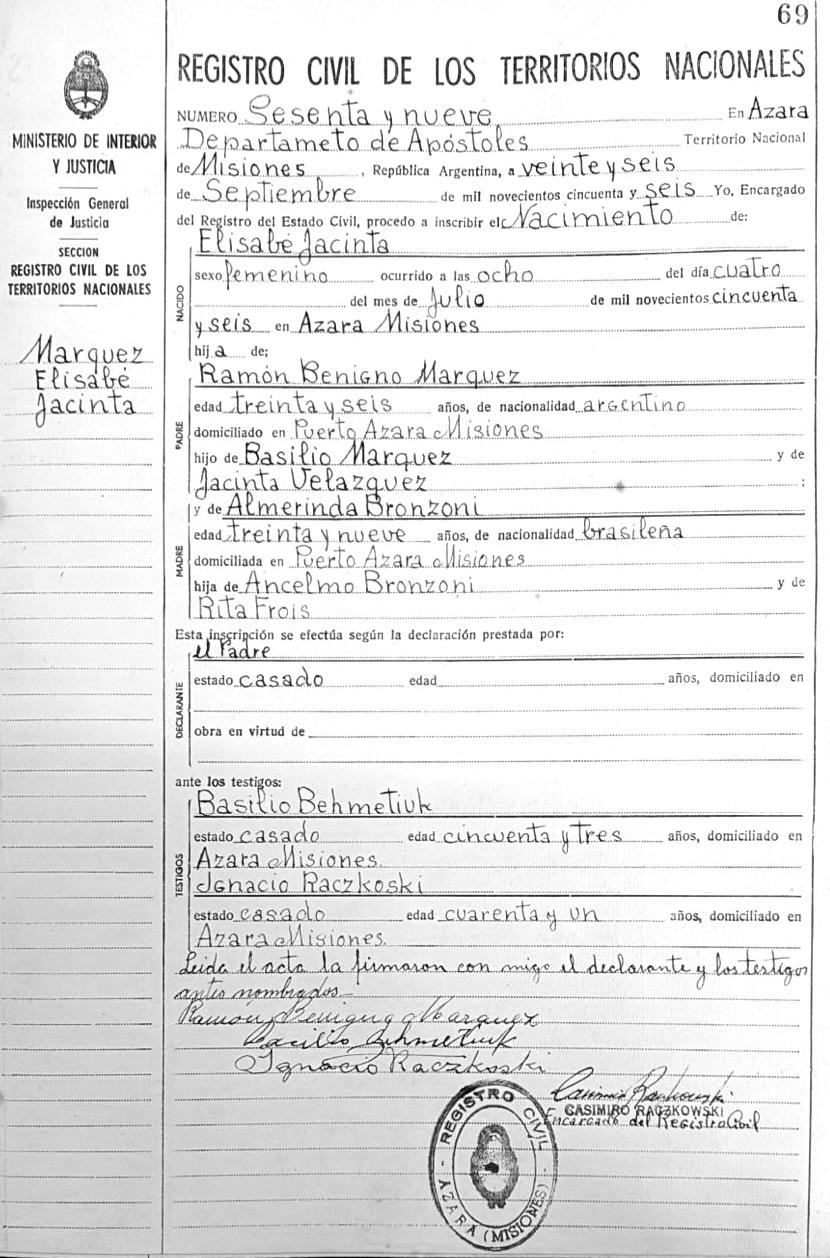 69
MINISTERIO DE INTERIOR
Y JUSTICIA
Inspección General
de Justicia
SECCION
REGISTRO CIVIL DE LOS
TERRITORIOS NACIONALES
Marquez
Elisabé
Jacinta
REGISTRO CIVIL DE LOS TERRITORIOS NACIONALES
NUMERO Sesenta y nueve En Azara
Departameto de Apóstoles Territorio Nacional
de Misiones, República Argentina, a veinte y seis
de Septiembre de mil novecientos cincuenta y seis Yo, Encargado
del Registro del Estado Civil, procedo a inscribir el Nacimiento de:
NACIDO
Elisabé Jacinta
sexo femenino ocurrido a las ocho del día cuatro
del mes de Julio de mil novecientos cincuenta
y seis en Azara Misiones
hija de;
PADRE
Ramón Benigno Marquez
edad treinta y seis años, de nacionalidad argentino
domiciliado en Puerto Azara Misiones
hijo de Basilio Marquez y de
Jacinta Velazquez ;
MADRE
y de Almerinda Bronzoni
edad treinta y nueve años, de nacionalidad brasileña
domiciliada en Puerto Azara Misiones
hija de Ancelmo Bronzoni y de
Rita Frois
Esta inscripción se efectúa según la declaración prestada por:
DECLARANTE
el Padre
estado casado edad años, domiciliado en
obra en virtud de
ante los testigos:
TESTIGOS
Basilio Behmetiuk
estado casado edad cincuenta y tres años, domiciliado en
Azara Misiones.
Ignacio Raczkoski
estado casado edad cuarenta y un años, domiciliado en
Azara Misiones.
Leida el acta la firmaron con migo el declarante y los testigos
antes nombrados
Ramón Benigno Marquez
Bacilio Behmetiuk
Ignacio Raczkoski
Casimiro Raczkowski
CASIMIRO RACZKOWSKI
Encargado del Registro Civil
REGISTRO CIVIL
AZARA (MISIONES)